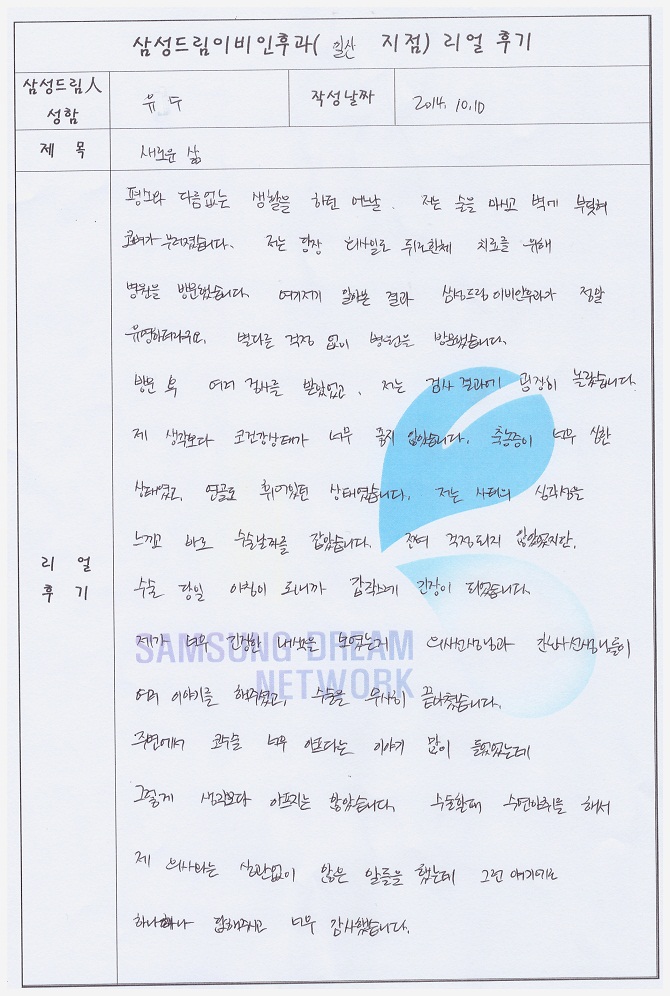 삼성드림이비인후과( 일산 지점) 리얼 후기
삼성드림人 성함
유 두
작성날짜
2014. 10. 10
제 목
새로운 삶
리 얼 후 기
평소와 다름없는 생활을 하던 어느날. 저는 술을 마시고 벽에 부딪혀
코뼈가 부러졌습니다. 저는 당장 치료를 위해
병원을 방문했습니다. 여기저기 알아본 결과 삼성드림이비인후과가 정말
유명하더라구요. 별다른 걱정 없이 병원을 방문했습니다.
방문 후 여러 검사를 받았었고, 저는 검사 결과에 굉장히 놀랐습니다.
제 생각보다 코건강상태가 너무 좋지 않았습니다. 축농증이 너무 심한
상태였고, 연골도 휘어있던 상태였습니다. 저는 사태의 심각성을
느끼고 바로 수술날짜를 잡았습니다. 전혀 걱정되지 않았었지만,
수술 당일 아침이 되니까 갑작스레 긴장이 되었습니다.
제가 너무 긴장한 내색을 보였는지 의사선생님과 간호사선생님들이
여러 이야기를 해주셨고, 수술을 무사히 끝마쳤습니다.
주변에서 코수술 너무 아프다는 이야기 많이 들었었는데
그렇게 생각보다 아프지는 않았습니다. 수술할때 수면마취를 해서
제 의사와는 상관없이 않은 말들을 했는데 그런 얘기에도
하나하나 답해주시고 너무 감사했습니다.
SAMSUNG DREAM
NETWORK